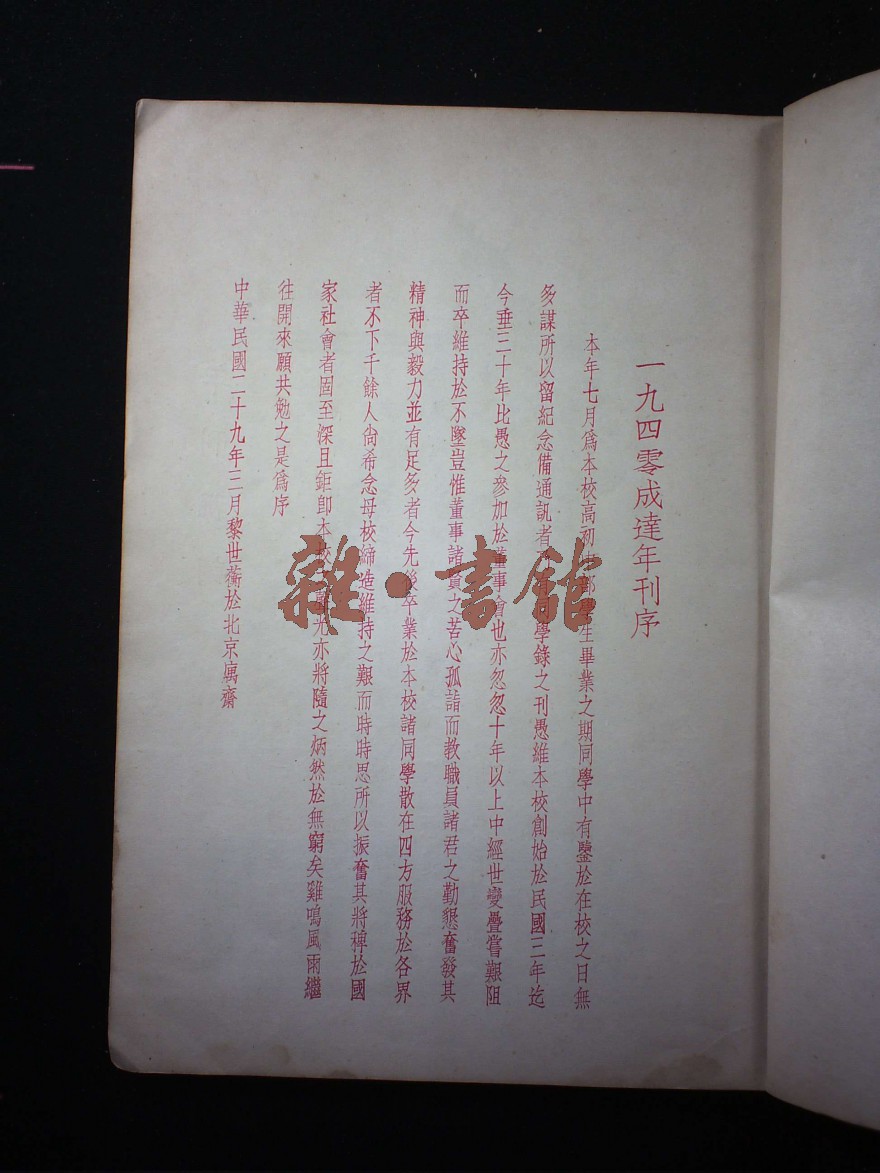 一九四零成達年刊序
本年七月爲本校高初生畢業之期同學中有鑒於在校之日無
多謀所以留紀念備通訊者學錄之刊愚維本校創始於民國三年迄
今垂三十年比愚之參加於董事會也亦忽忽十年以上中經世變疊嘗艱阻
而卒維持於不墜豈惟董事諸賢之苦心孤詣而教職員諸君之勤懇奮發其
精神與毅力並有足多者今先後卒業於本校諸同學散在四方服務於各界
者不下千餘人尙希念母校締造維持之艱而時時思所以振奮其將裨於國
家社會者固至深且鉅卽本校光亦將隨之炳然於無窮矣雞鳴風雨繼
往開來願共勉之是爲序
中華民國二十九年三月黎世蘅於北京寓齋
雜·書館